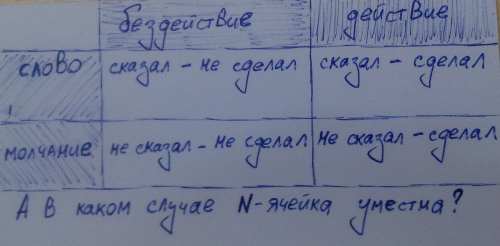 бездействие действие
слово сказал - не сделал сказал - сделал
молчание не сказал - не сделал не сказал - сделал
А в каком случае N-ячейка уместна?